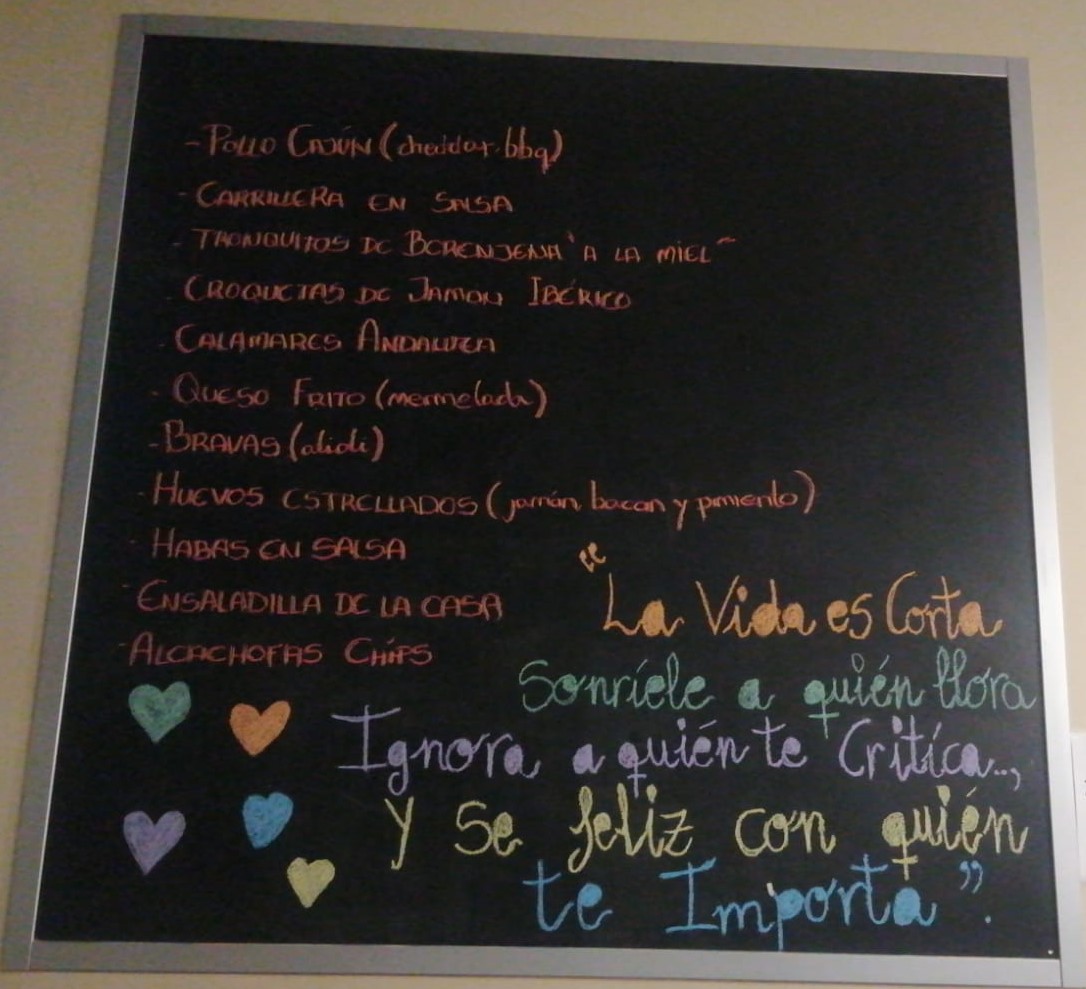 - POLLO CAJÚN (cheddar, bbq)
- CARRILLERA EN SALSA
- TRONQUITOS DE BERENJENA "A LA MIEL"
- CROQUETAS DE JAMON IBÉRICO
- CALAMARES ANDALUZA
- QUESO FRITO (mermelada)
- BRAVAS (alioli)
- HUEVOS ESTRELLADOS (jamón, bacon y pimiento)
- HABAS EN SALSA
- ENSALADILLA DE LA CASA
- ALCACHOFAS CHIPS
"La Vida es Corta
Sonríele a quién llora
Ignora a quién te Critíca...,
y Se feliz con quién
te Importa".